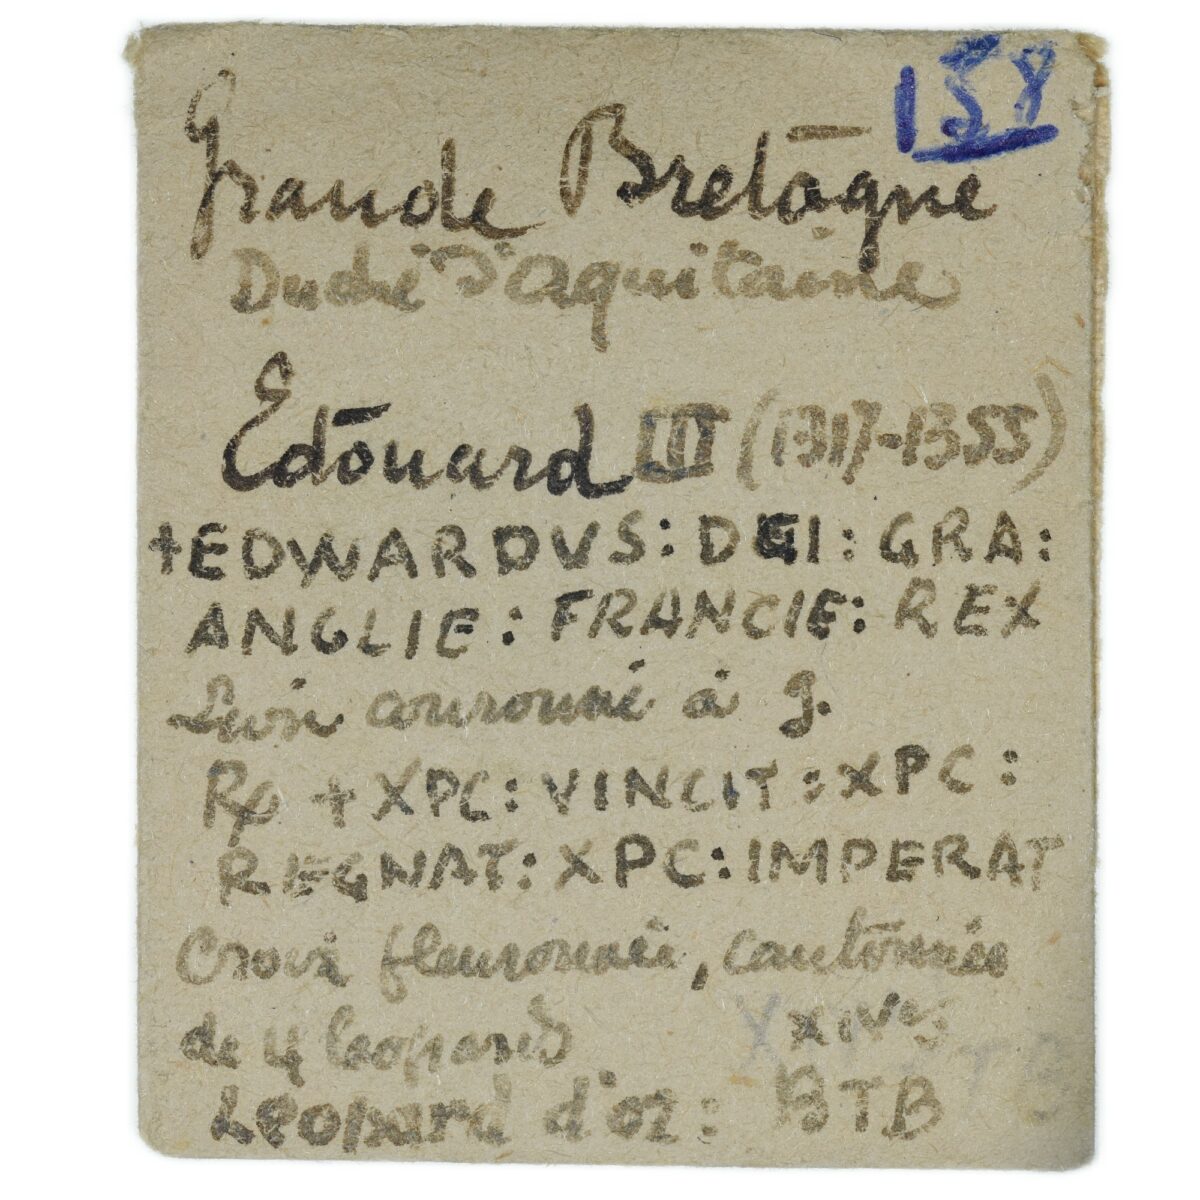 158
Grande Bretagne
Duché d'Aquitaine
Edouard III (1317-1355)
+EDWARDVS: DEI: GRA:
ANGLIE: FRANCIE: REX
Lion couronné à g.
R/ +XPC: VINCIT: XPC:
REGNAT: XPC: IMPERAT
Croix fleuronnée, cantonnée
de 4 leopards
Leopard d'or: BTB